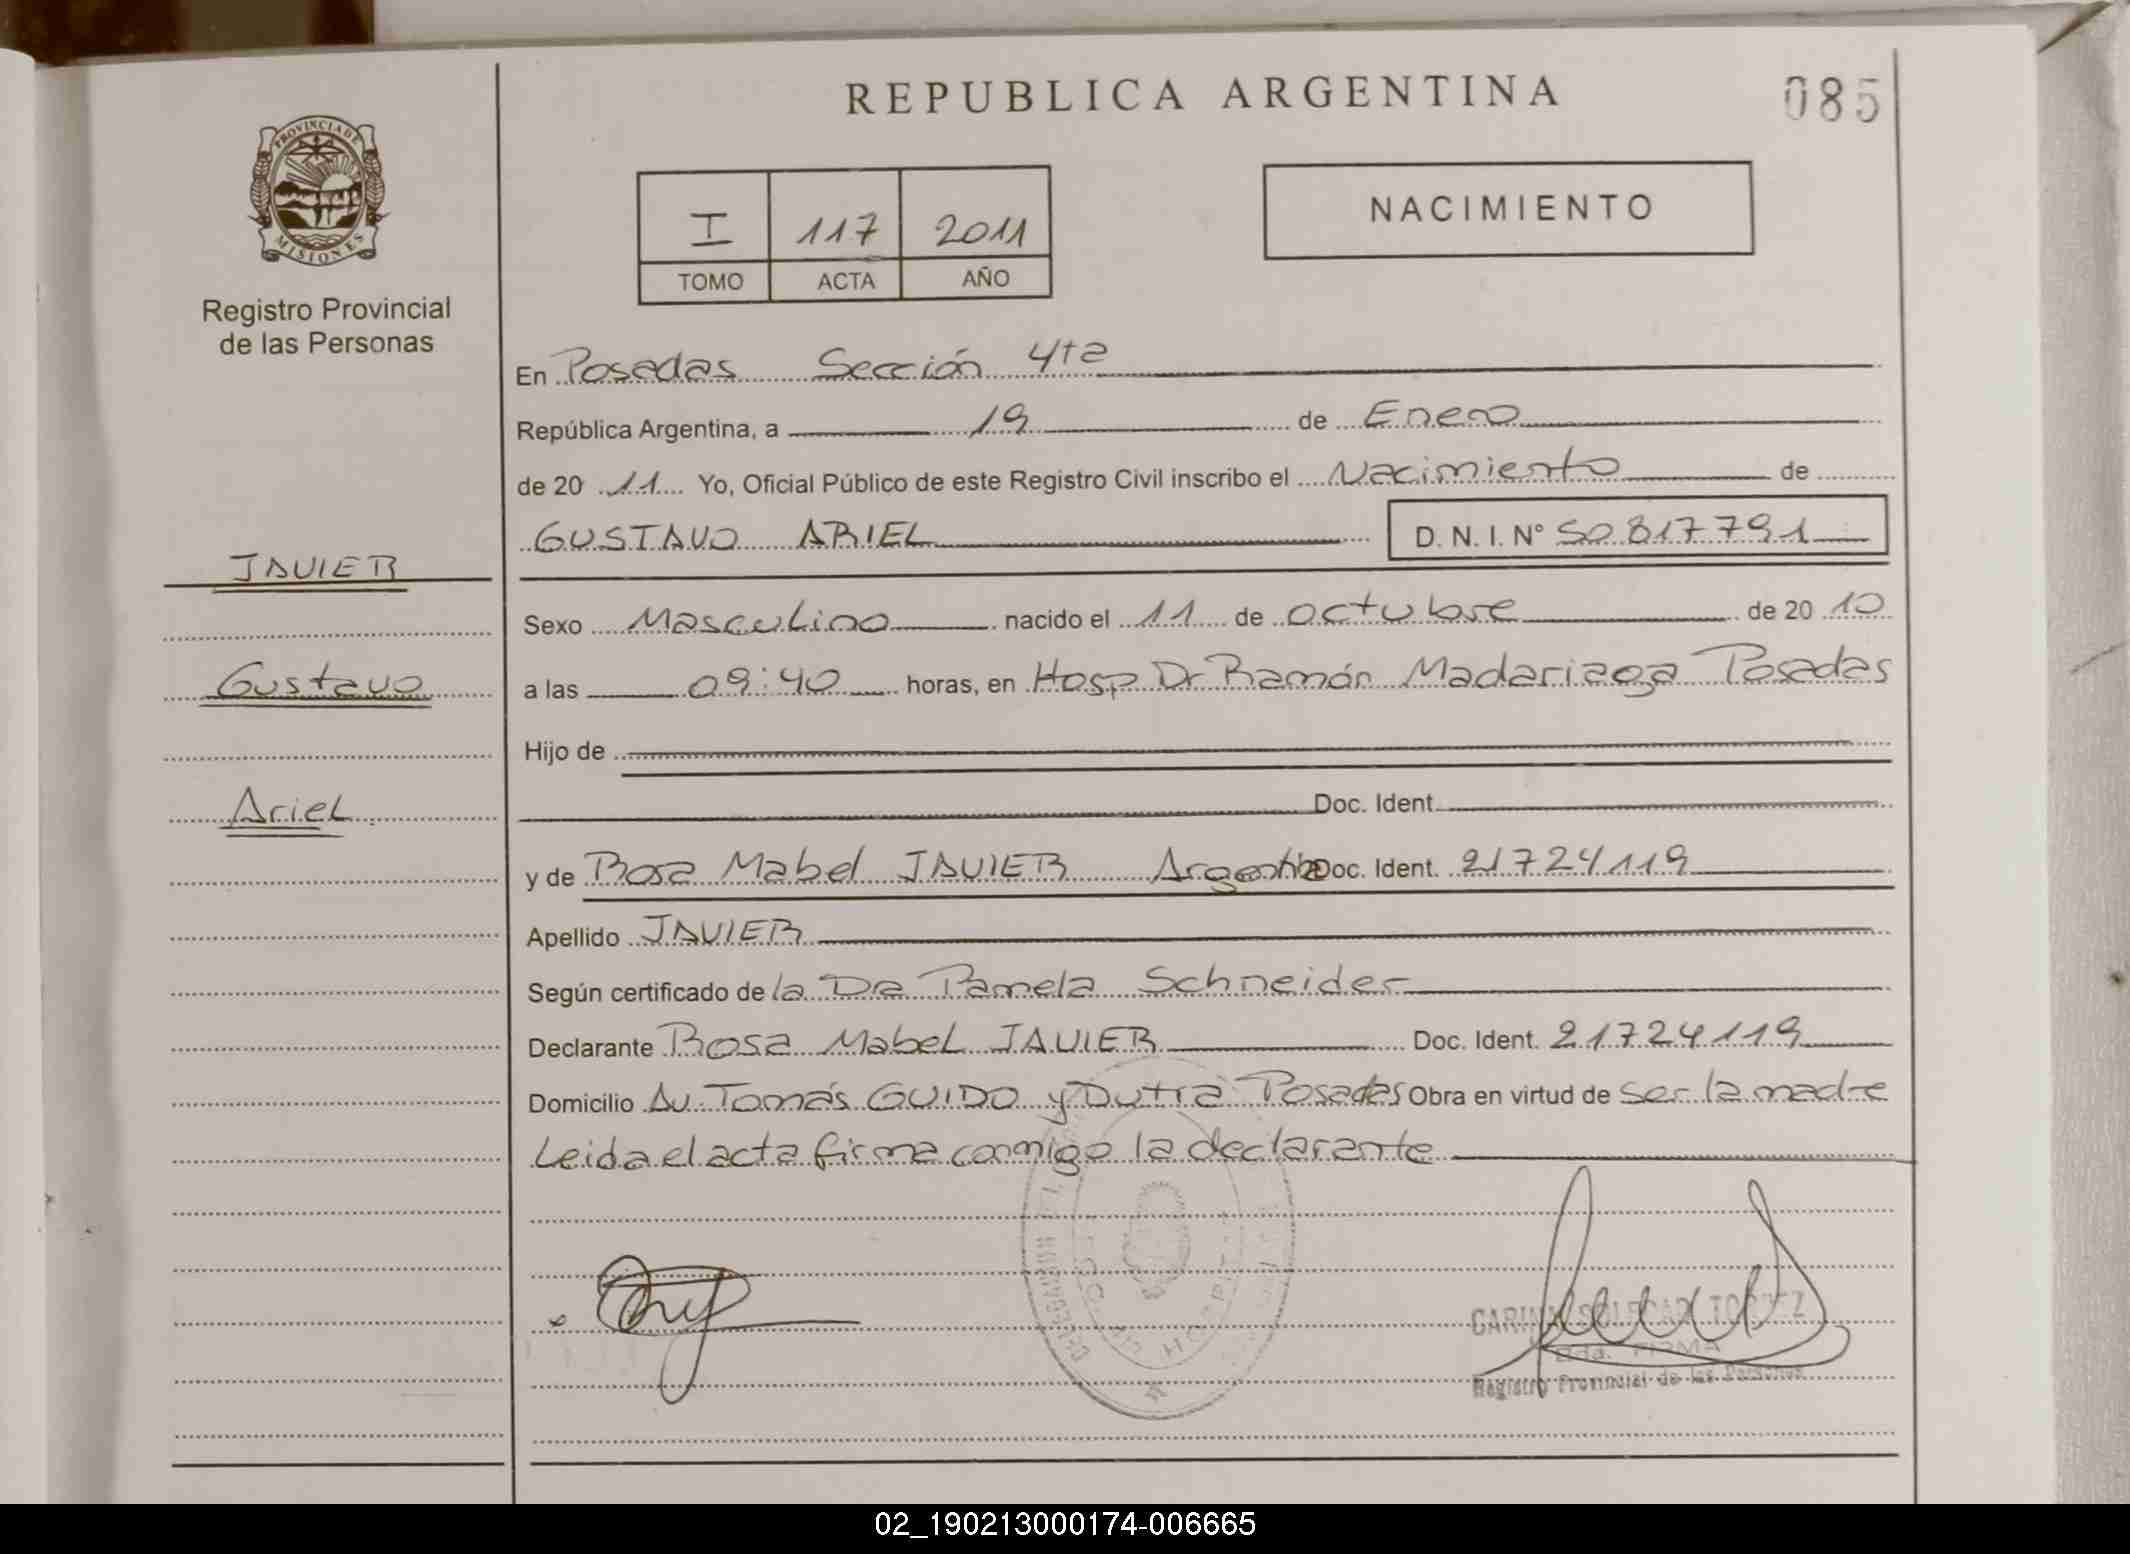 REPUBLICA ARGENTINA
085
PROVINCIA DE
MISIONES
Registro Provincial
de las Personas
I 117 2011
TOMO ACTA AÑO
NACIMIENTO
En Posadas Sección 4ta
República Argentina, a 19 de Enero
de 20 11 Yo, Oficial Público de este Registro Civil inscribo el Nacimiento de
GUSTAVO ARIEL D. N. I. Nº 50817791
JAVIER
Gustavo
Ariel
Sexo Masculino nacido el 11 de octubre de 20 10
a las 09:40 horas, en Hosp Dr Ramón Madariaga Posadas
Hijo de
Doc. Ident.
y de Rosa Mabel JAVIER Argentina Doc. Ident. 21724119
Apellido JAVIER
Según certificado de la Dra Pamela Schneider
Declarante Rosa Mabel JAVIER Doc. Ident. 21724119
Domicilio Av. Tomás GUIDO y Dutra Posadas Obra en virtud de ser la madre
Leida el acta firma conmigo la declarante
CARINA SOLEDAD
FIRMA
Registro Provincial de las Personas
02_190213000174-006665